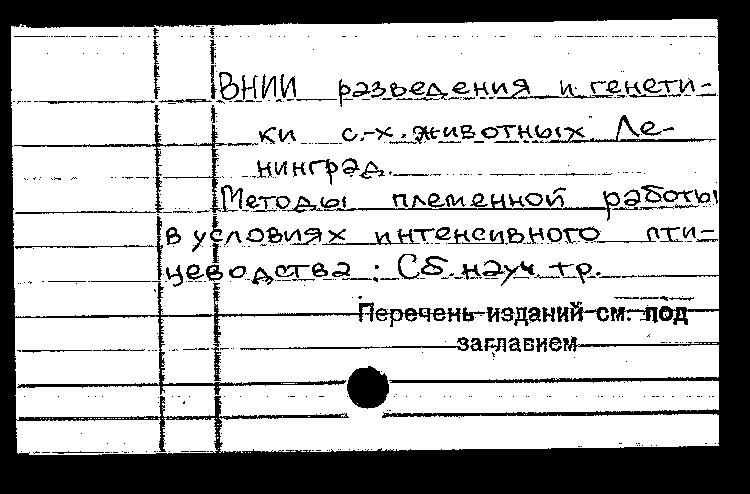 ВНИИ разведения и генети-
ки с.-х. животных Ле-
нинград.
Методы племенной работы
в условиях интенсивного пти-
цеводства : Сб. науч. тр.
Перечень изданий см. под
заглавием